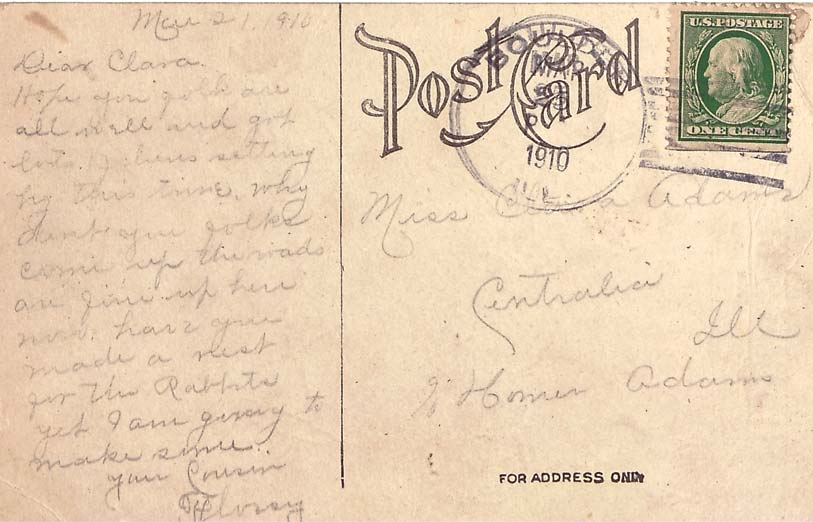 Mar 21, 1910
Dear Clara.
Hope you folk are
all well and got
lots of hens setting
by this time. Why
dont you folks
come up the roads
are fine up here
now. have you
made a nest
for the Rabbits
yet I am going to
make some.
your Cousin
Flossy
Post Card
BOULDER
MAR
1910
ILL.
U.S. POSTAGE
ONE CENT
Miss Clara Adams
Centralia
Ill
Homer Adams
FOR ADDRESS ONLY